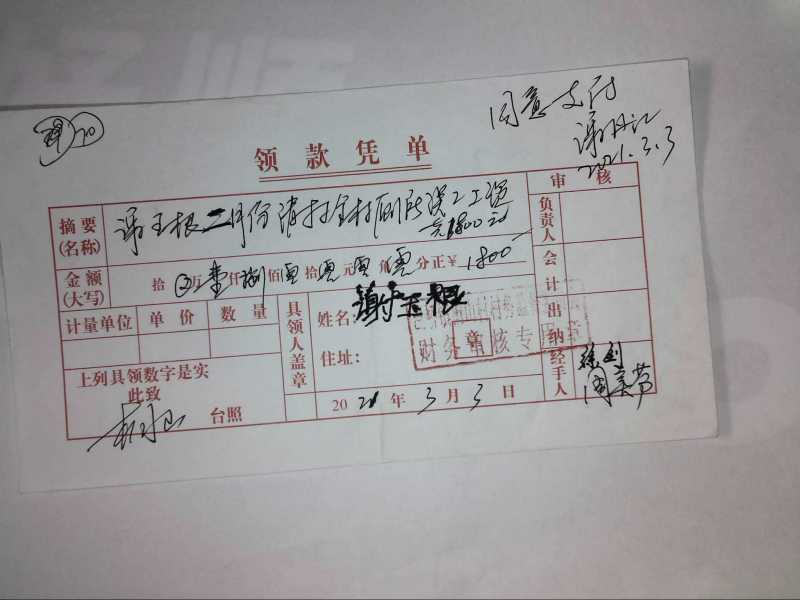 同意支付
2021.3.3
领款凭单
审核
摘要
(名称)
谢玉根二月份清扫全村厕所 工资
1800元
负责人
金额
(大写)
拾 万 壹仟捌佰零拾零元零角零分正¥ 1800
会计
计量单位 单价 数量
具领人盖章
姓名 谢玉根
住址:
财务审核专用章
出纳
上列具领数字是实
此致
台照
2021年3月3日
经手人
徐剑
周美芳